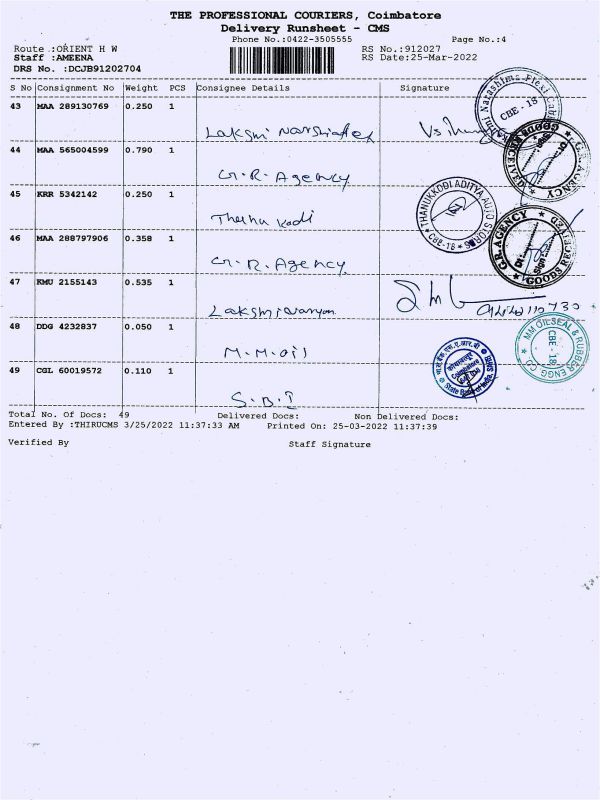 THE PROFESSIONAL COURIERS, Coimbatore
Delivery Runsheet - CMS
Phone No.:0422-3505555 Page No.:4
Route .:ORIENT H W RS No.:912027
Staff :AMEENA RS Date:25-Mar-2022
DRS No. :DCJB91202704
S No Consignment No Weight PCS Consignee Details Signature
43 MAA 289130769 0.250 1
Lakshmi
CBE - 18
44 MAA 565004599 0.790 1
G.R. Agency
G.R.AGENCY GOODS RECEIVED
45 KRR 5342142 0.250 1
Thanu kodi
THANUKKODI ADITYA AUTO STORES CBE-18
46 MAA 288797906 0.358 1
G.R. Agency
G.R.AGENCY GOODS RECEIVED Dt. Sign
47 KMU 2155143 0.535 1
48 DDG 4232837 0.050 1
M.M.oil
MM OILSEAL & RUBBER ENGG CO CBE - 18
49 CGL 60019572 0.110 1
S.B.I
State Bank of India
Total No. Of Docs: 49 Delivered Docs: Non Delivered Docs:
Entered By :THIRUCMS 3/25/2022 11:37:33 AM Printed On: 25-03-2022 11:37:39
Verified By Staff Signature